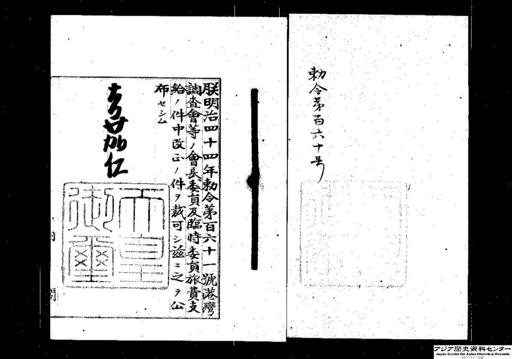 勅令第百六十号
朕明治四十四年勅令第百六十號港灣
調査會等ノ會長委員及臨時委員旅費支
給ノ件中改正ノ件ヲ裁可シ茲ニ之ヲ公
布セシム
嘉仁
天皇
御璽
アジア歴史資料センター
Japan Center for Asian Historical Records